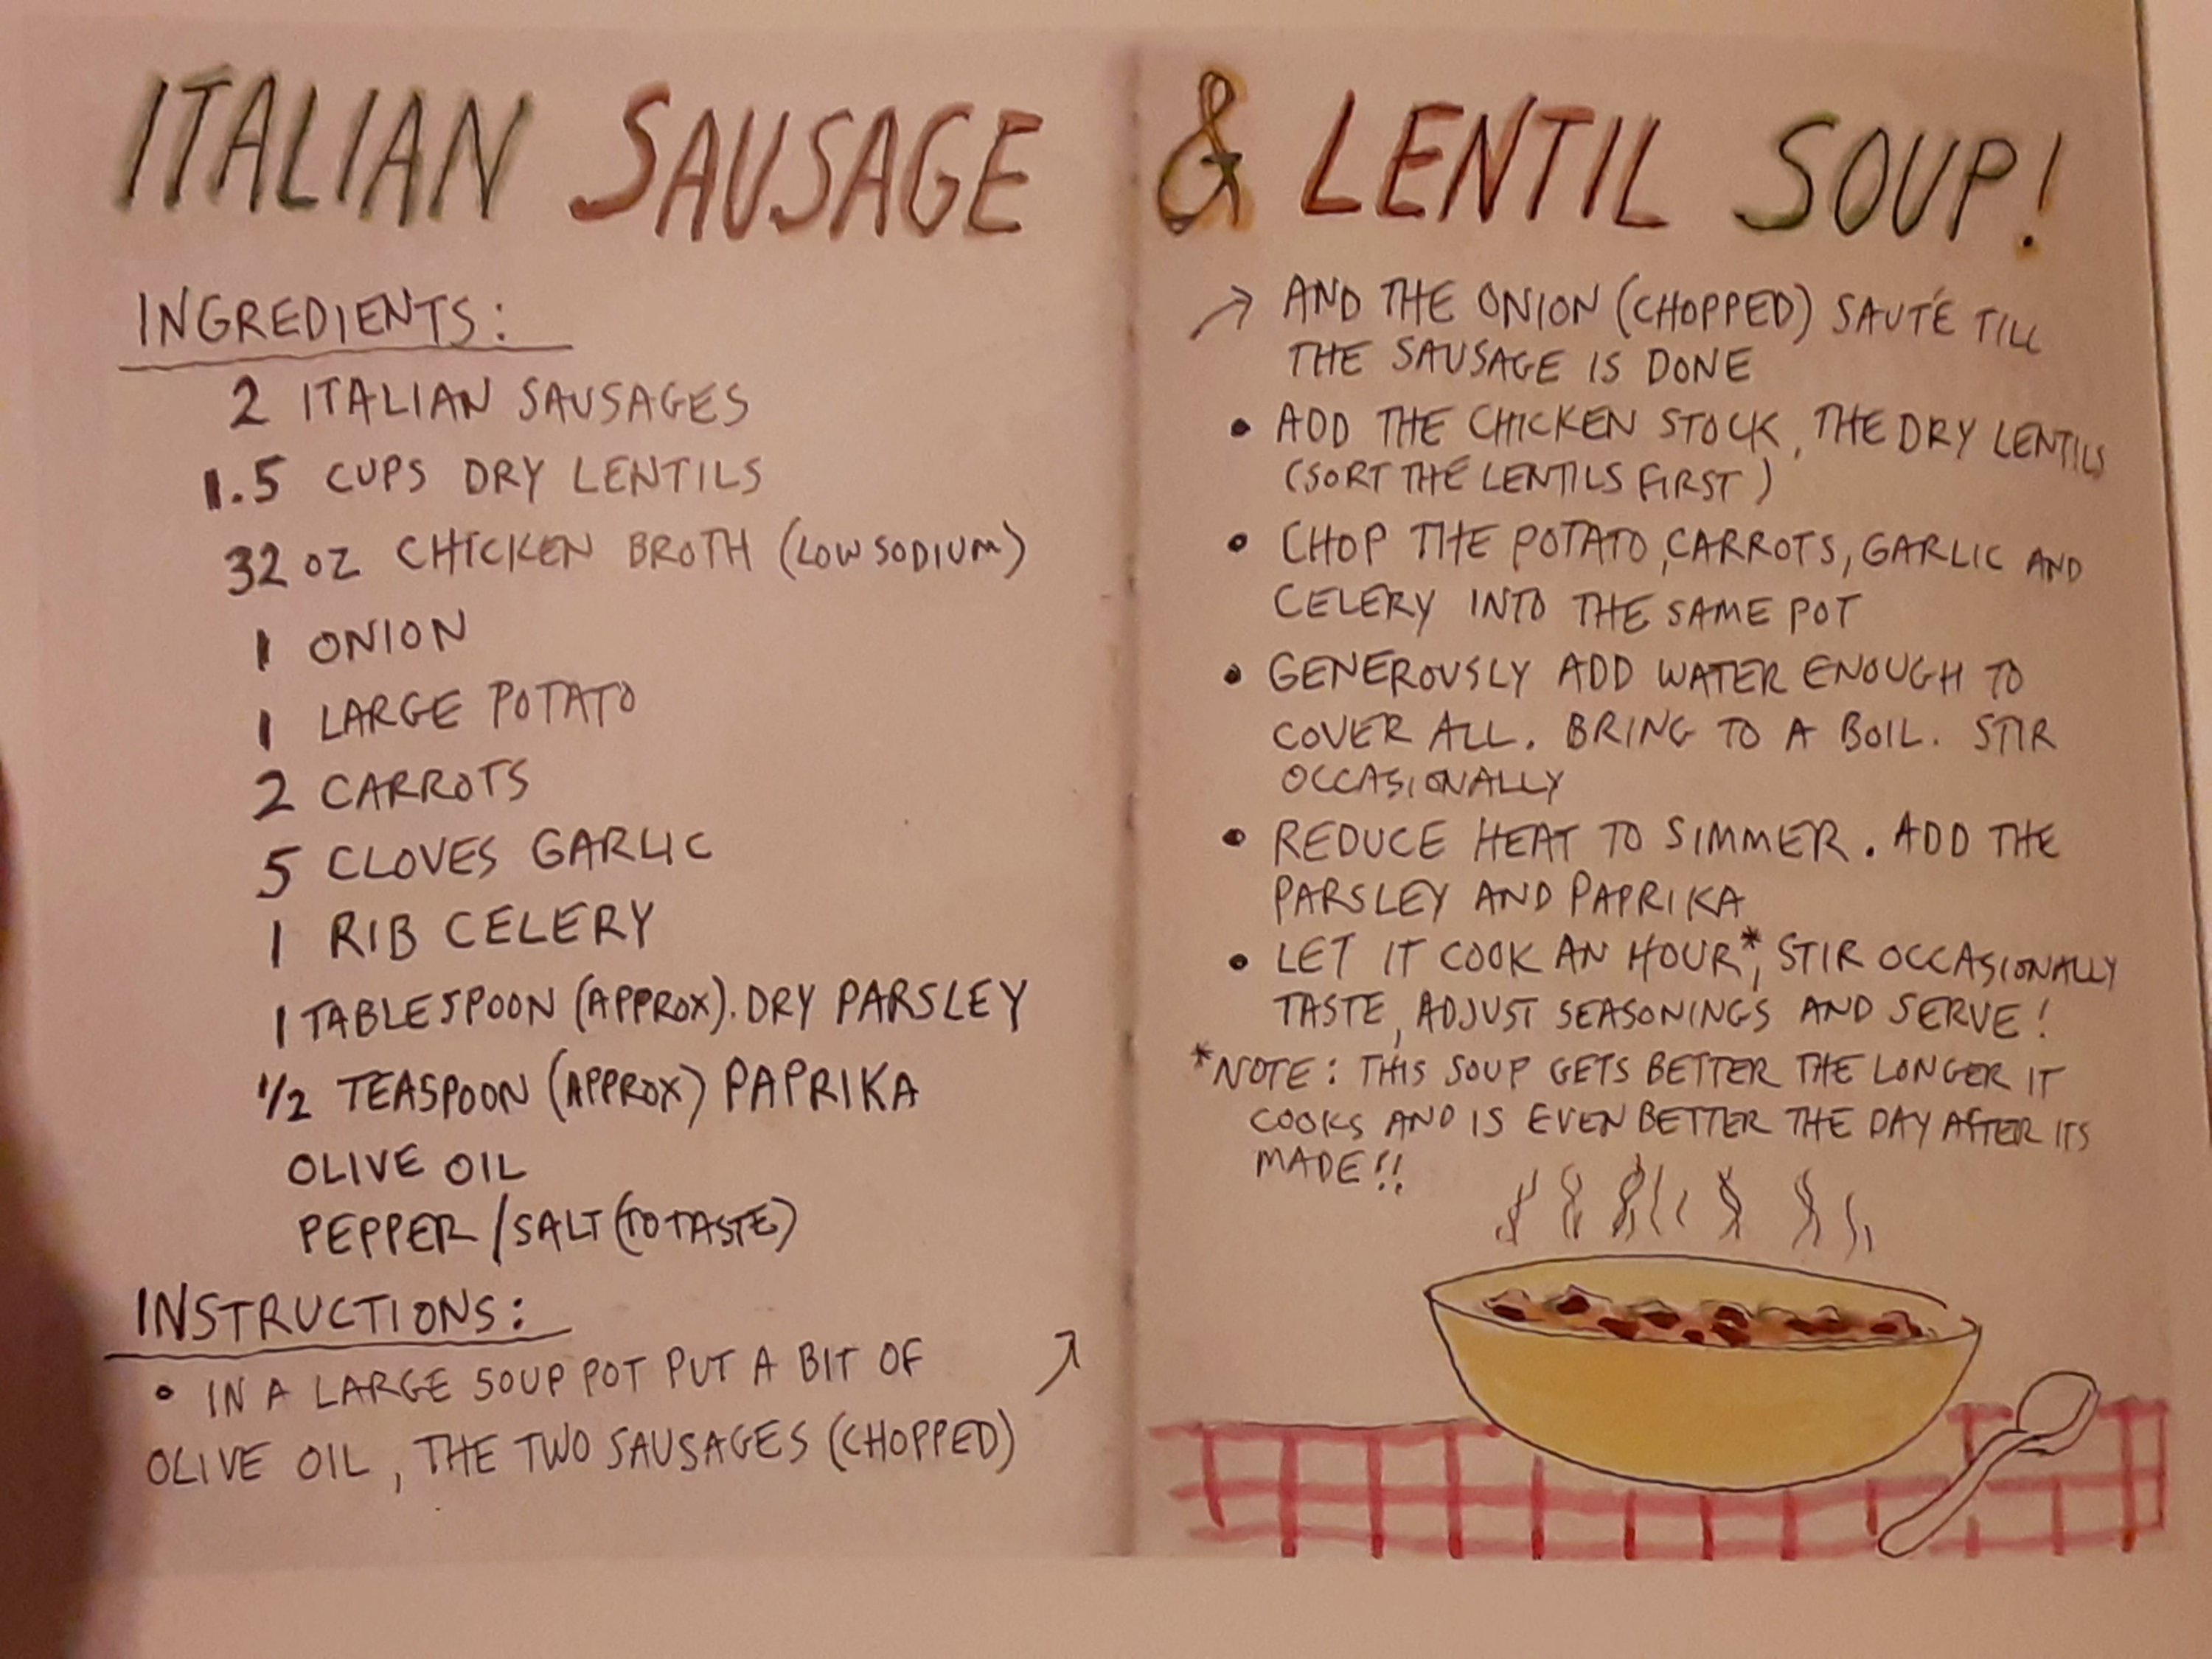 ITALIAN SAUSAGE & LENTIL SOUP!
INGREDIENTS:
2 ITALIAN SAUSAGES
1.5 CUPS DRY LENTILS
32 OZ CHICKEN BROTH (LOW SODIUM)
1 ONION
1 LARGE POTATO
2 CARROTS
5 CLOVES GARLIC
1 RIB CELERY
1 TABLESPOON (APPROX). DRY PARSLEY
1/2 TEASPOON (APPROX) PAPRIKA
OLIVE OIL
PEPPER/SALT (TO TASTE)
INSTRUCTIONS:
• IN A LARGE SOUP POT PUT A BIT OF
OLIVE OIL, THE TWO SAUSAGES (CHOPPED) ↗
→ AND THE ONION (CHOPPED) SAUTÉ TILL
THE SAUSAGE IS DONE
• ADD THE CHICKEN STOCK, THE DRY LENTILS
(SORT THE LENTILS FIRST)
• CHOP THE POTATO, CARROTS, GARLIC AND
CELERY INTO THE SAME POT
• GENEROUSLY ADD WATER ENOUGH TO
COVER ALL. BRING TO A BOIL. STIR
OCCASIONALLY
• REDUCE HEAT TO SIMMER. ADD THE
PARSLEY AND PAPRIKA
• LET IT COOK AN HOUR*, STIR OCCASIONALLY
TASTE, ADJUST SEASONINGS AND SERVE!
*NOTE: THIS SOUP GETS BETTER THE LONGER IT
COOKS AND IS EVEN BETTER THE DAY AFTER ITS
MADE!!